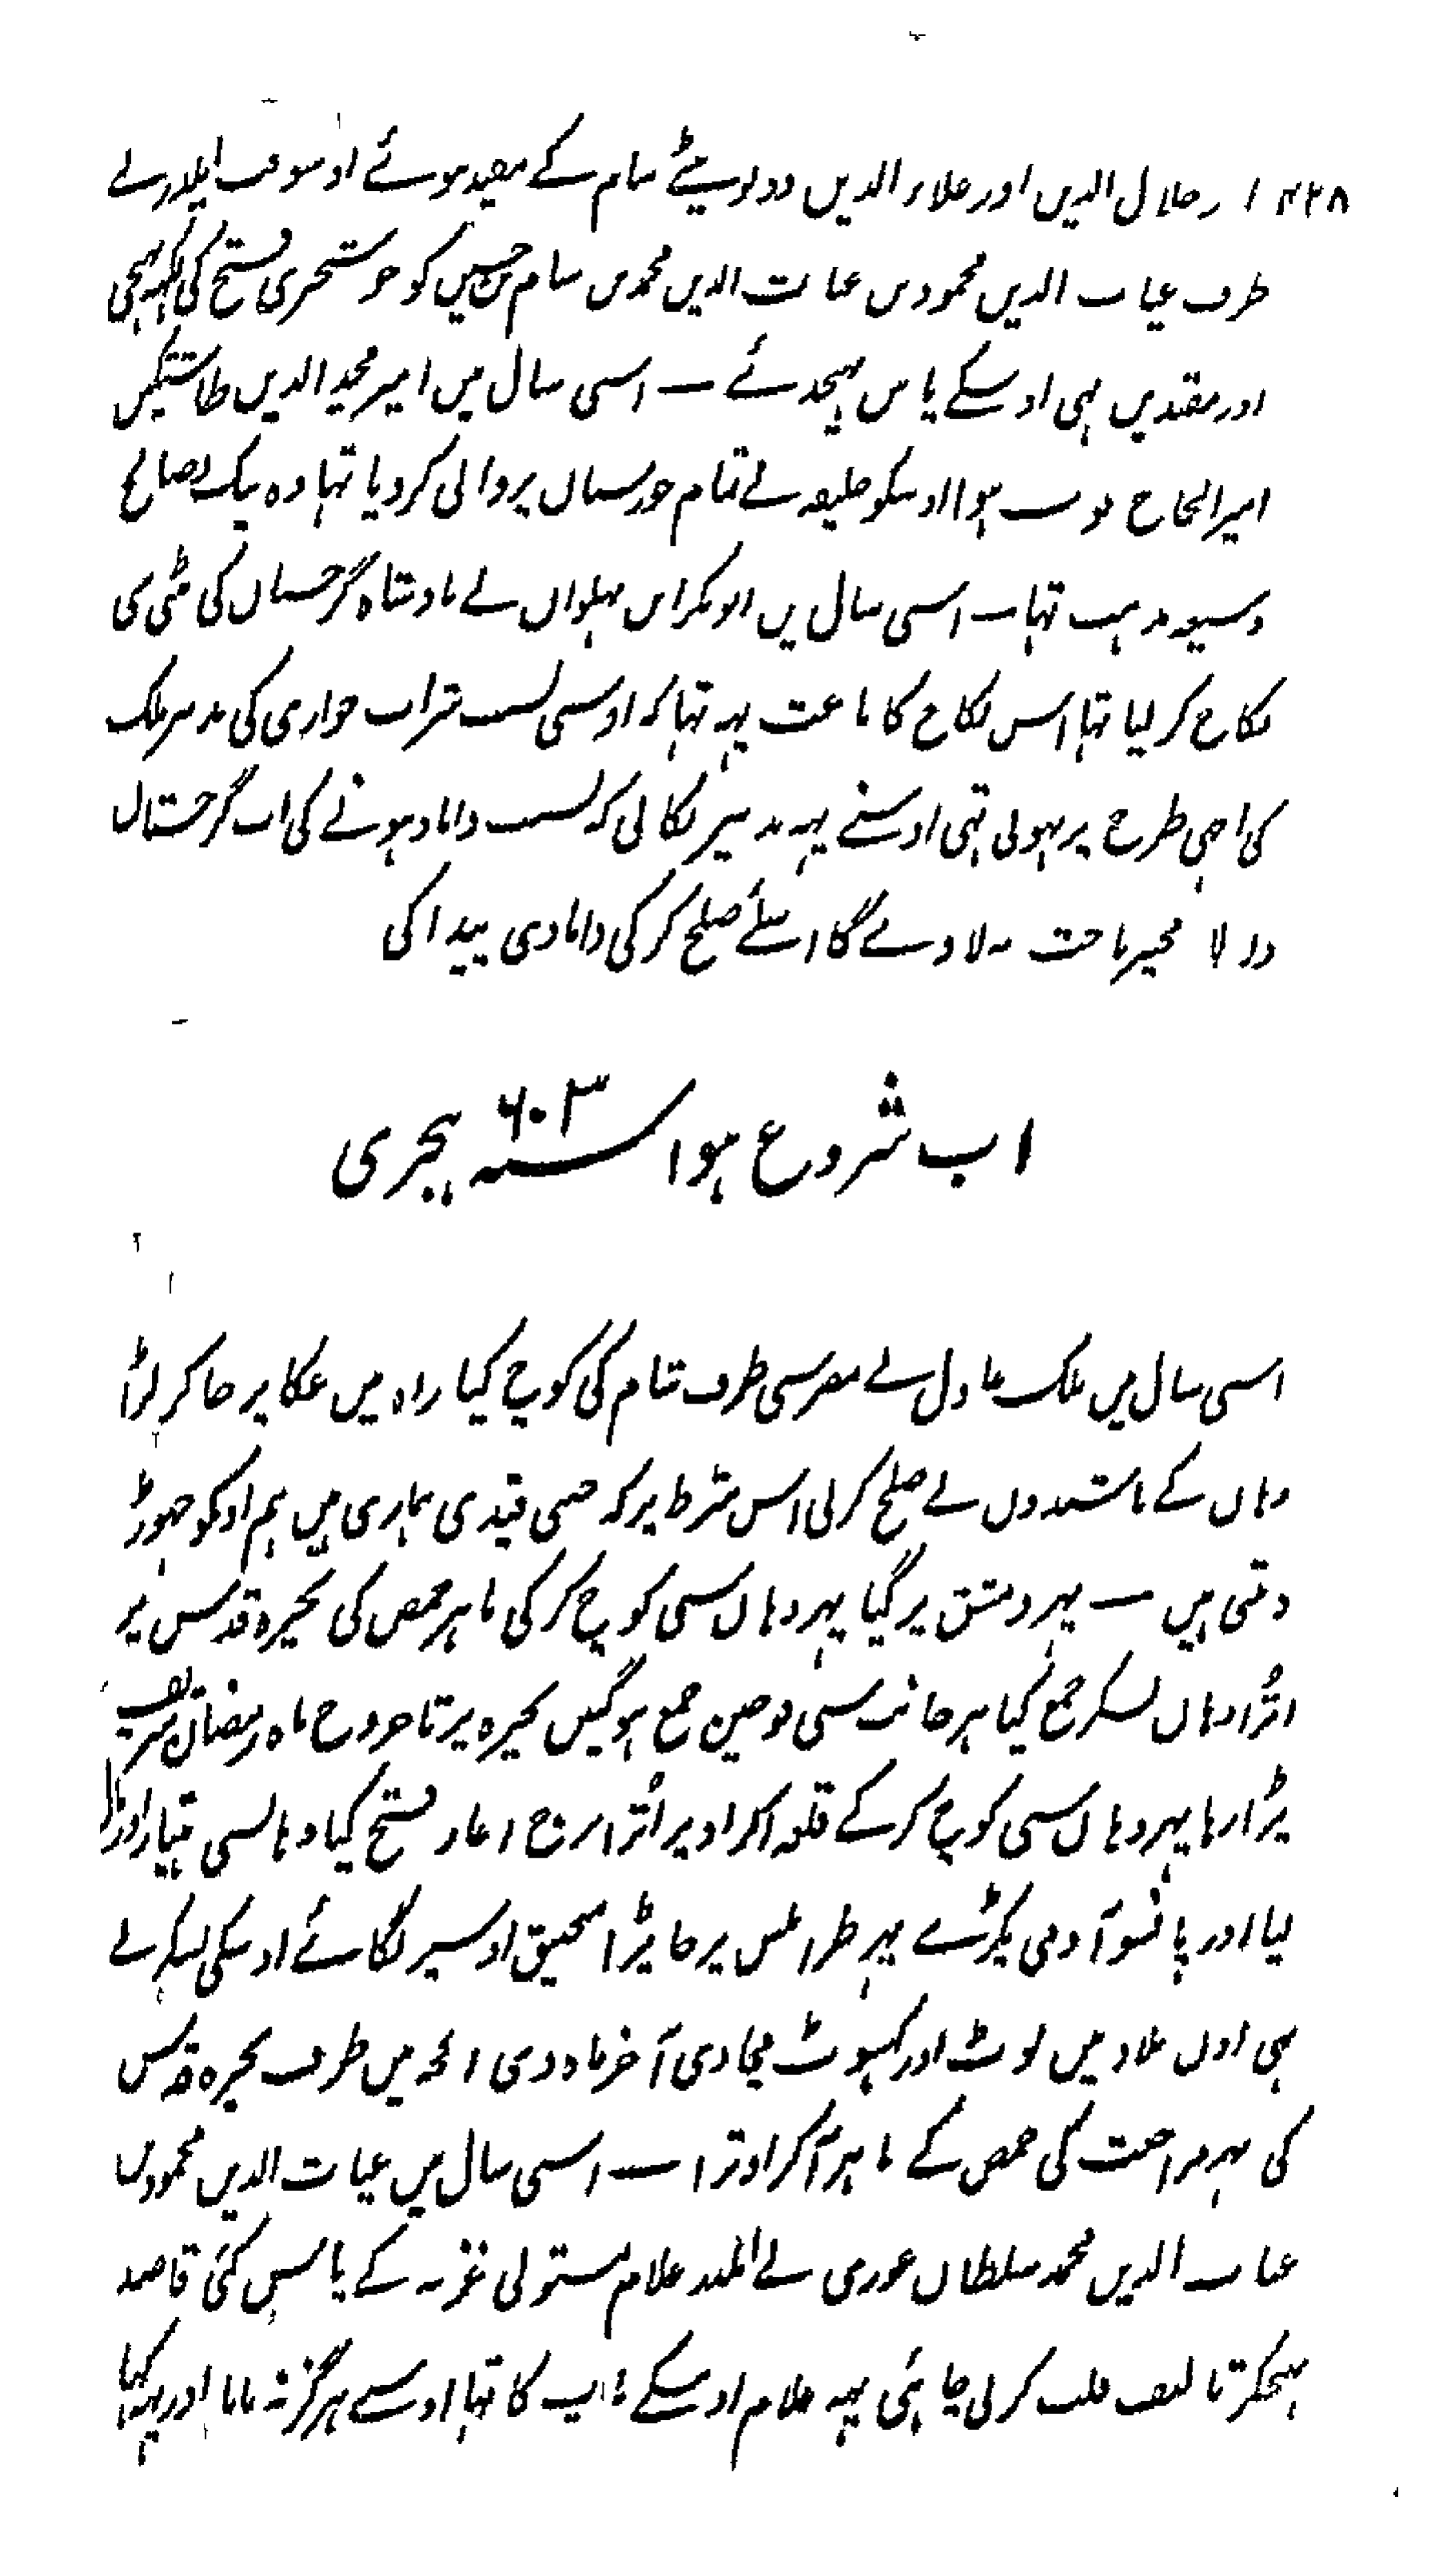 ۴۲۸ ا ر جلال الدین اور علاء الدین دونو بیٹے سام کے مقید ہوئے اوسوقت ایلدز نے
طرف غیاث الدین محمود بن غیاث الدین محمد بن سام بن حسین کو خوشخبری فتح کی لکہہ بہیجی
اور مقیدین بہی اوسکے پاس بہیجدئے — اسی سال میں امیر مجیر الدین طاشتکین
امیر الحاج فوت ہوا اوسکو خلیفہ نے تمام خورستان پر والی کر دیا تہا وہ نیک صالح
و شیعہ مذہب تہا — اسی سال میں ابوبکر ابن پہلوان نے بادشاہ گرجستان کی بیٹی سی
نکاح کر لیا تہا اس نکاح کا باعث یہہ تہا کہ اوسی بسبب شراب خواری کی تدبیر ملک
کی اچہی طرح پر نہوتی تہی اوسنے یہہ تدبیر نکالی کہ بسبب داماد ہونے کی اب گرجستان
والا مجہپر تاخت نہ لاوے گا اسلئے صلح کر کی دامادی پیدا کی
اب شروع ہوا سنہ ۶۰۳ ہجری
اسی سال میں ملک عادل نے مصر سی طرف شام کی کوچ کیا راہ میں عکا پر جا کر لڑا
وہاں کے باشندوں نے صلح کر لی اس شرط پر کہ جتنی قیدی ہماری ہیں ہم اونکو چہوڑ
دیتی ہیں — پہر دمشق پر گیا پہر وہاں سی کوچ کر کی باہر حمص کی بحیرہ قدس پر
اترا وہاں لشکر جمع کیا ہر جانب سی فوجین جمع ہوگئیں بحیرہ پر تا خروج ماہ رمضان شریف
پڑا رہا پہر وہاں سی کوچ کر کے قلعہ اکراد پر اترا برج اعناز فتح کیا وہانسی ہتیار اور مال
لیا اور پانسو آدمی پکڑے پہر طرابلس پر جا پڑا منجنیق اوسپر لگائے اوسکی لشکر نے
بہی اون بلاد میں لوٹ اور کہسوٹ مچا دی آخر ماہ ذی الحجہ میں طرف بحیرہ قدس
کی پہر مراجعت کی حمص کے باہر آکر اوترا — اسی سال میں غیاث الدین محمود بن
غیاث الدین محمد سلطان غوری نے ایلدز غلام مستولی غزنہ کے پاس کئی قاصد
بہیجکر تالیف قلب کرنی چاہئی یہہ غلام اوسکے باپ کا تہا اوسے ہرگز نہ مانا اور یہہ کہا